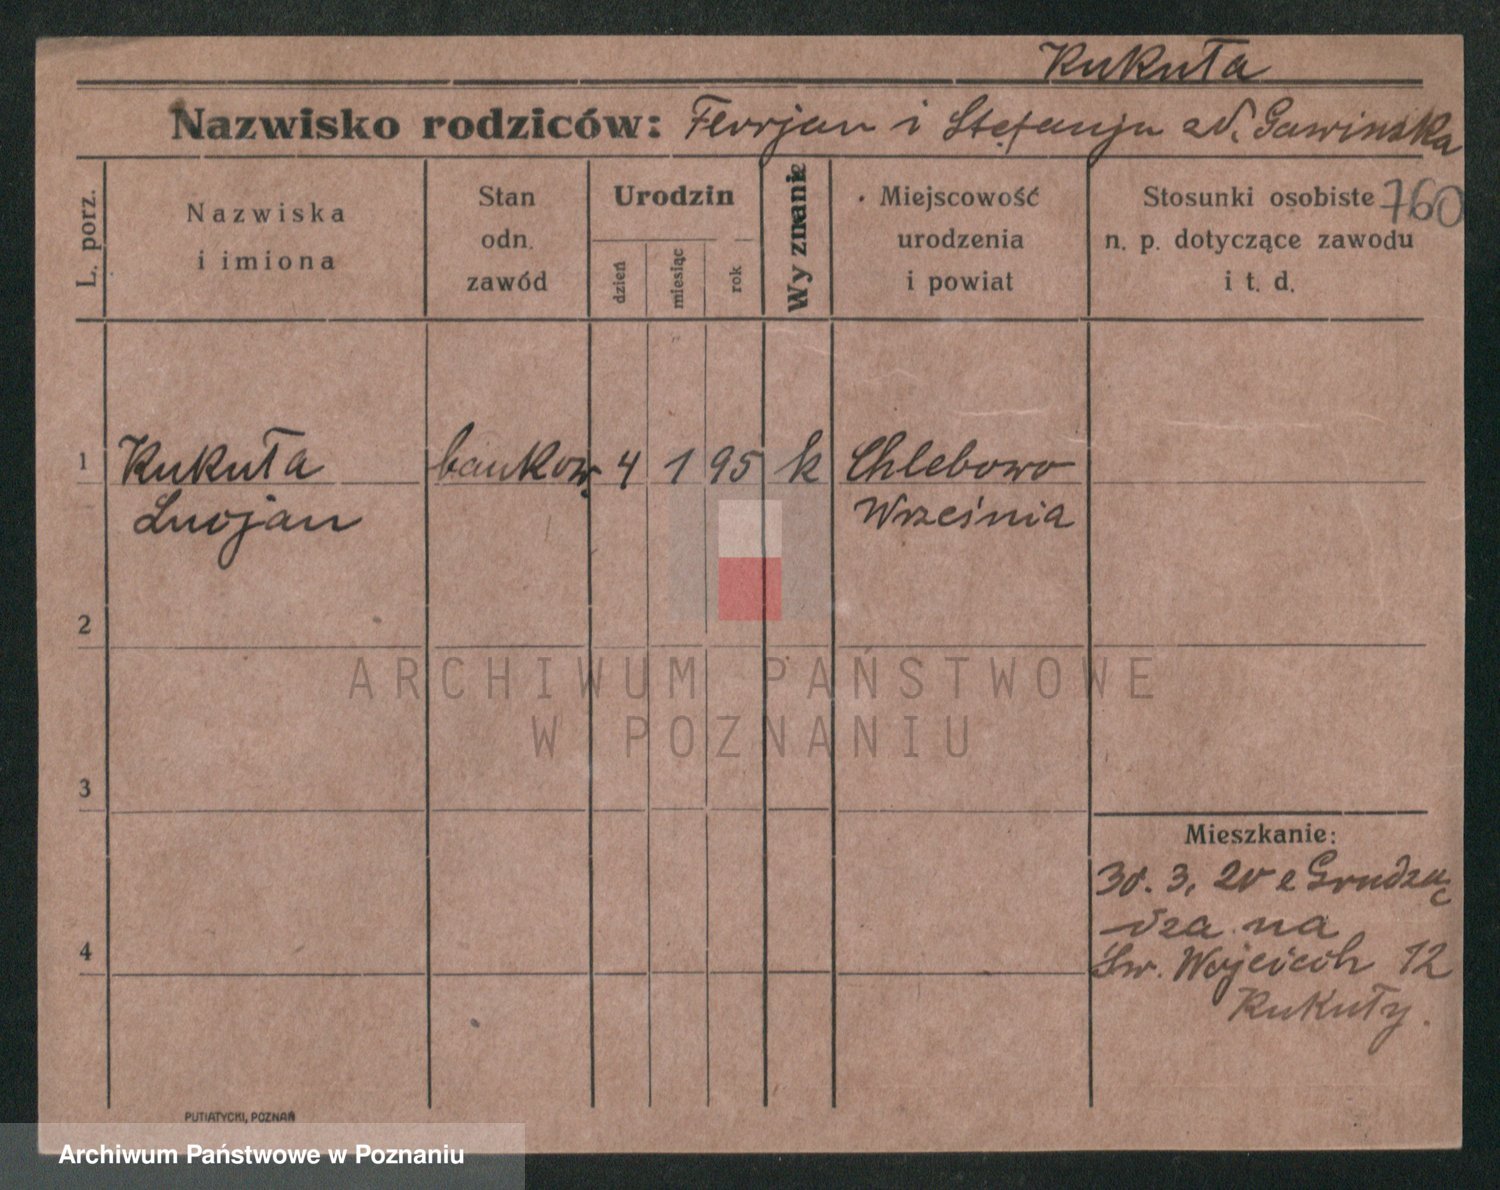 Kukuła
Nazwisko rodziców: Florjan i Stefanja zd. Gawińska
L. porz.
Nazwiska
i imiona
Stan
odn.
zawód
Urodzin
dzień
miesiąc
rok
Wyznanie
Miejscowość
urodzenia
i powiat
Stosunki osobiste
n. p. dotyczące zawodu
i t. d.
760
1 Kukuła bankow. 4 1 95 k Chlebowo
Lucjan Września
2
3
4
ARCHIWUM PAŃSTWOWE
W POZNANIU
Mieszkanie:
30. 3. 20 z Grudzią
dza na
Św. Wojciech 12
Kukuły.
PUTIATYCKI, POZNAŃ
Archiwum Państwowe w Poznaniu